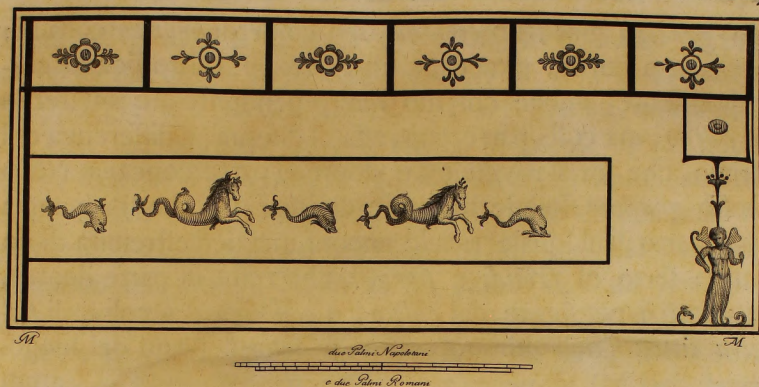 M M
due Palmi Napoletani
e due Palmi Romani